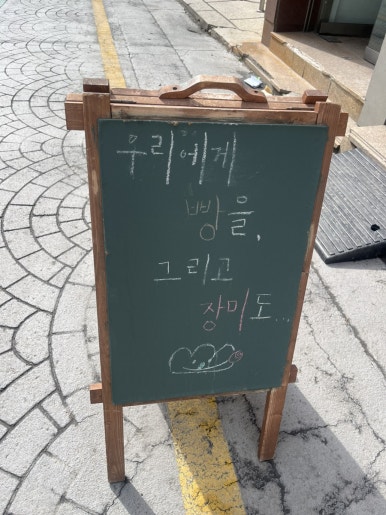 우리에게
빵을,
그리고
장미도...